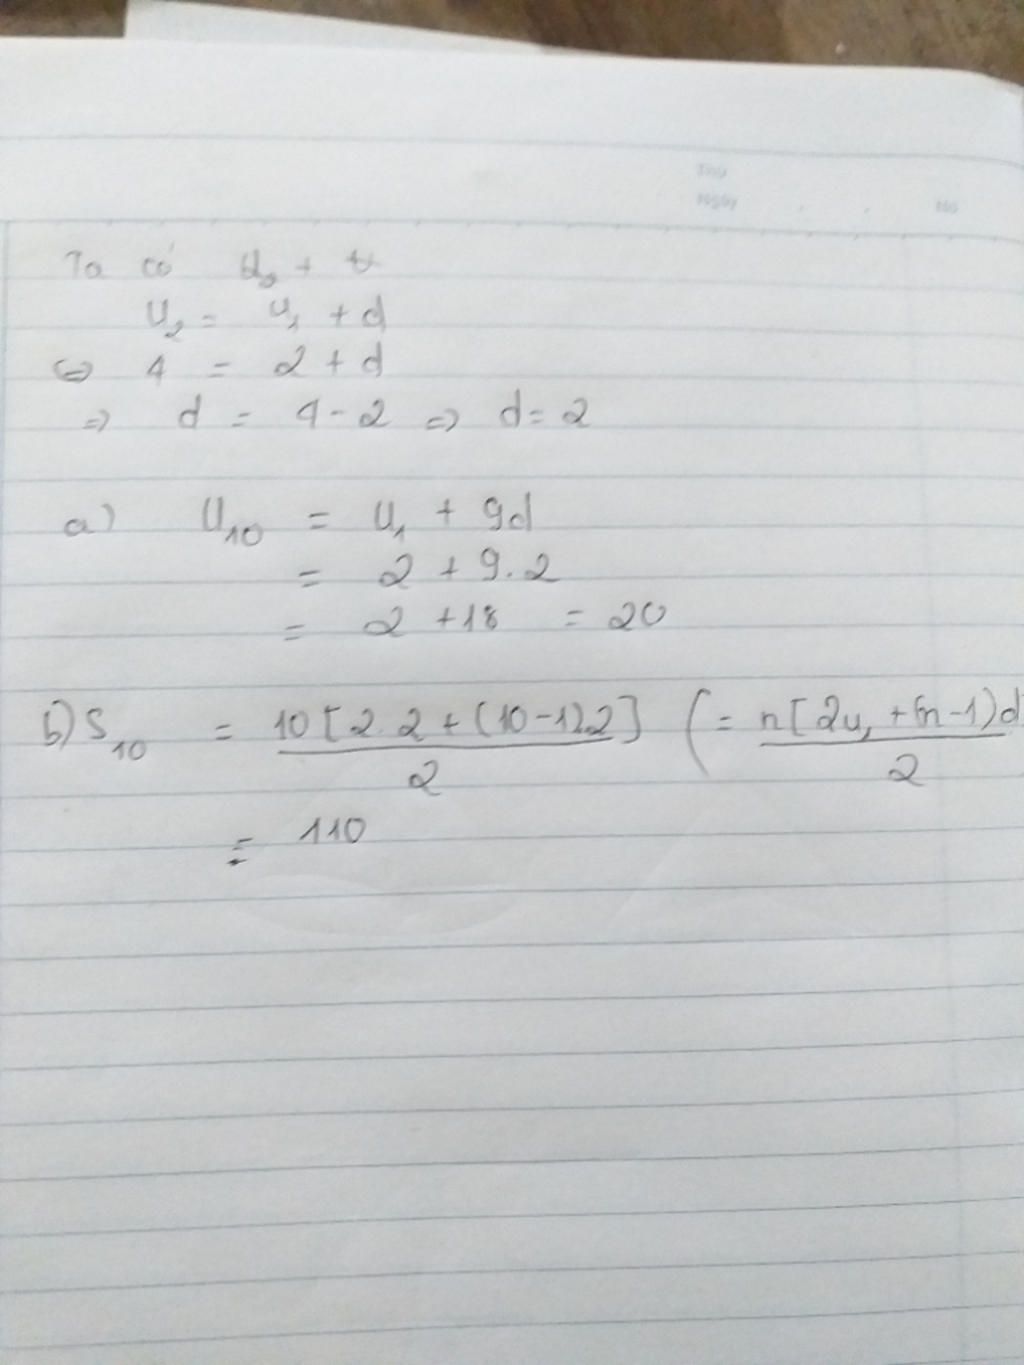 Thứ
Ngày . . No
Ta có U₂ +
U₂ = U₁ + d
⇔ 4 = 2 + d
⇒ d = 4 - 2 ⇒ d = 2
a) U₁₀ = U₁ + 9d
= 2 + 9.2
= 2 + 18 = 20
b) S₁₀ = 10[2.2+(10-1).2]/2 (= n[2u₁+(n-1)d/2
= 110